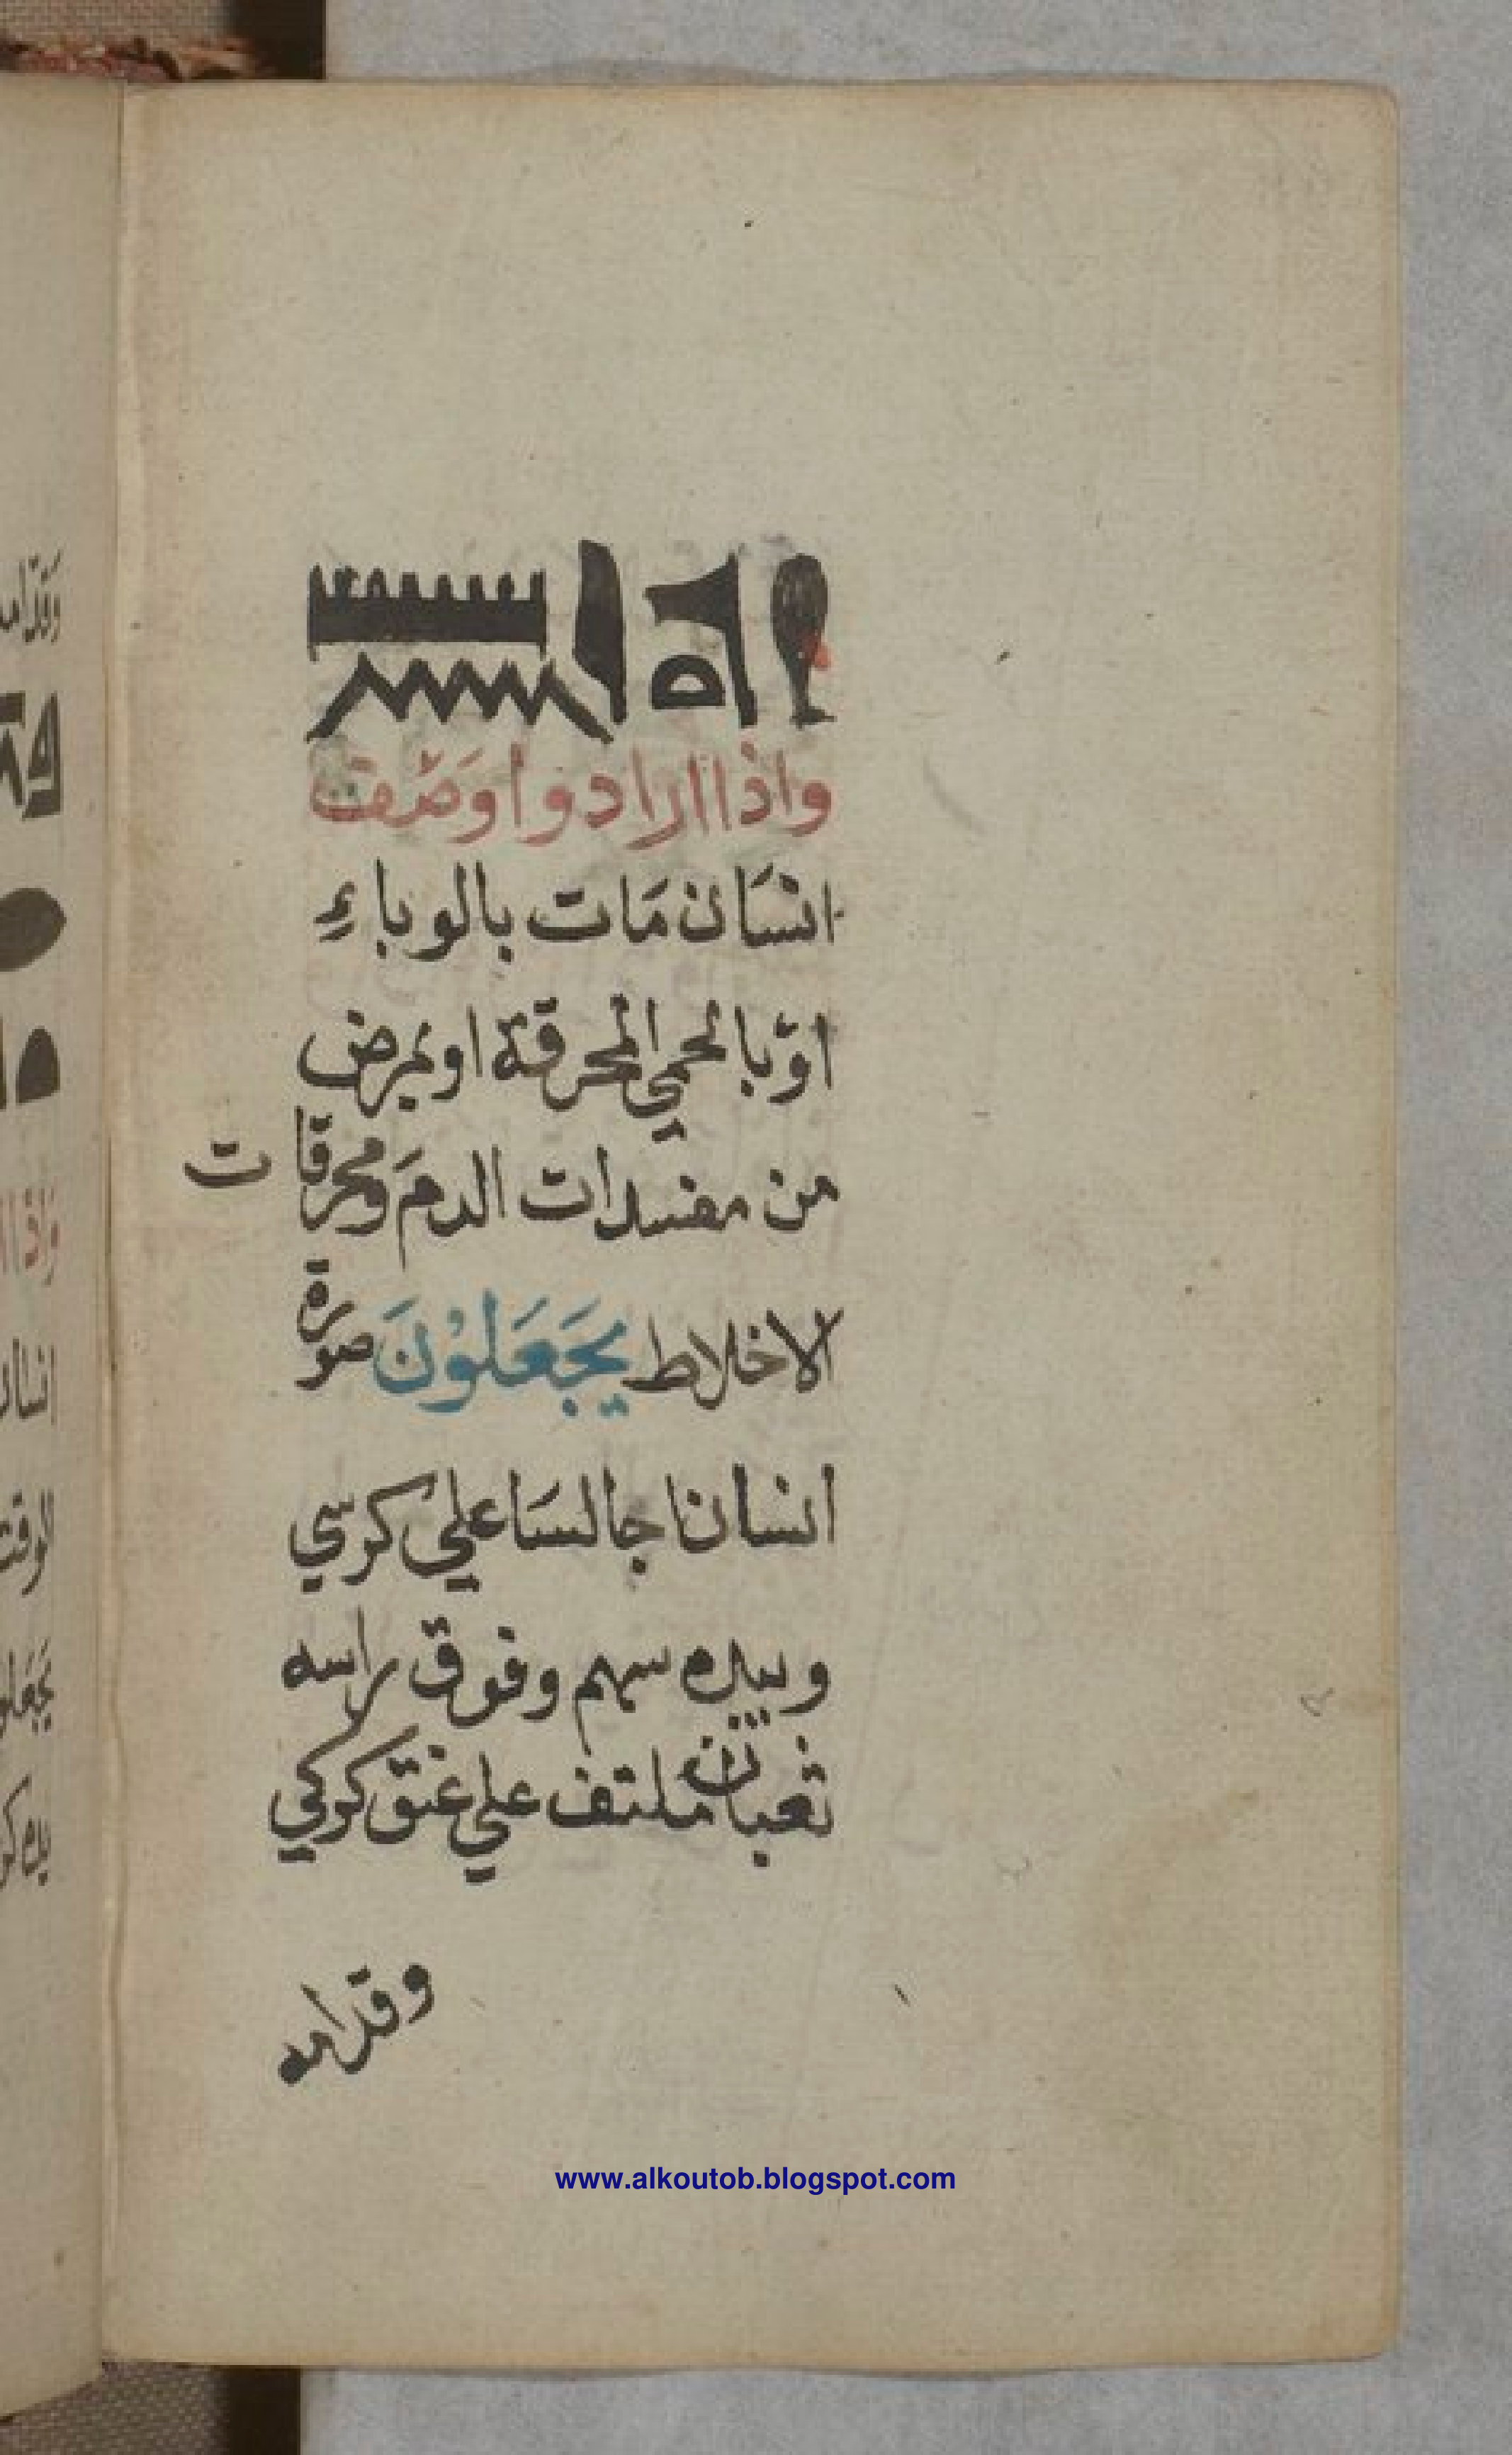 واذا ارادوا وصف
انسَان مَات بالوباءِ
اوّ بالحمي المحرقة او بمرض
من مفسدات الدمَ ومحرقات
الاخلاط يَجَعَلوْنَ صورة
انسانا جالسَا علي كرسي
وبيده سهم وفوق راسه
ثعبان ملتف علي عنق كركي
وقدّامه
www.alkoutob.blogspot.com